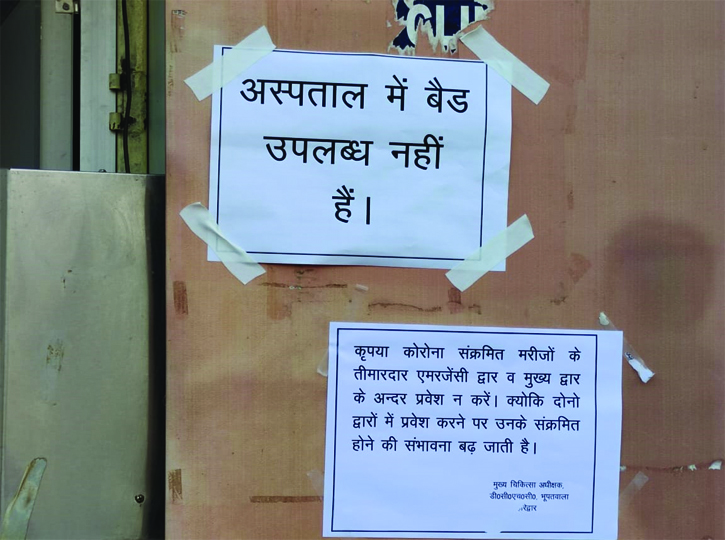 अस्पताल में बैड
उपलब्ध नहीं
हैं।
कृपया कोरोना संक्रमित मरीजों के
तीमारदार एमरजेंसी द्वार व मुख्य द्वार
के अन्दर प्रवेश न करें। क्योकि दोनो
द्वारों में प्रवेश करने पर उनके संक्रमित
होने की संभावना बढ़ जाती है।
मुख्य चिकित्सा अधीक्षक,
डी0सी0एच0सी0, भूपतवाला